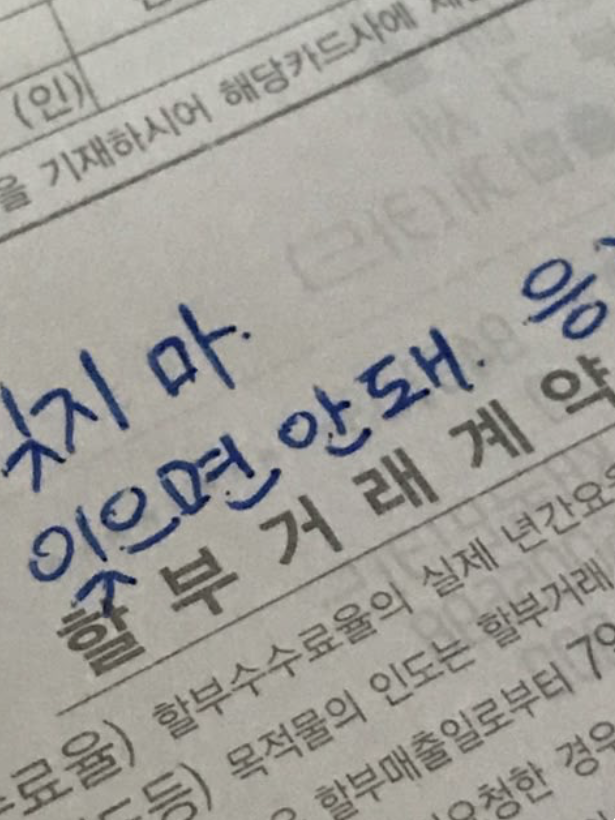 (인)
을 기재하시어 해당카드사에
잊지 마.
잊으면 안 돼. 응
할 부 거 래 계 약
할부수수료율의 실제 년간요
료율)
목적물의 인도는 할부거래
등)
할부매출일로부터 79
요청한 경우